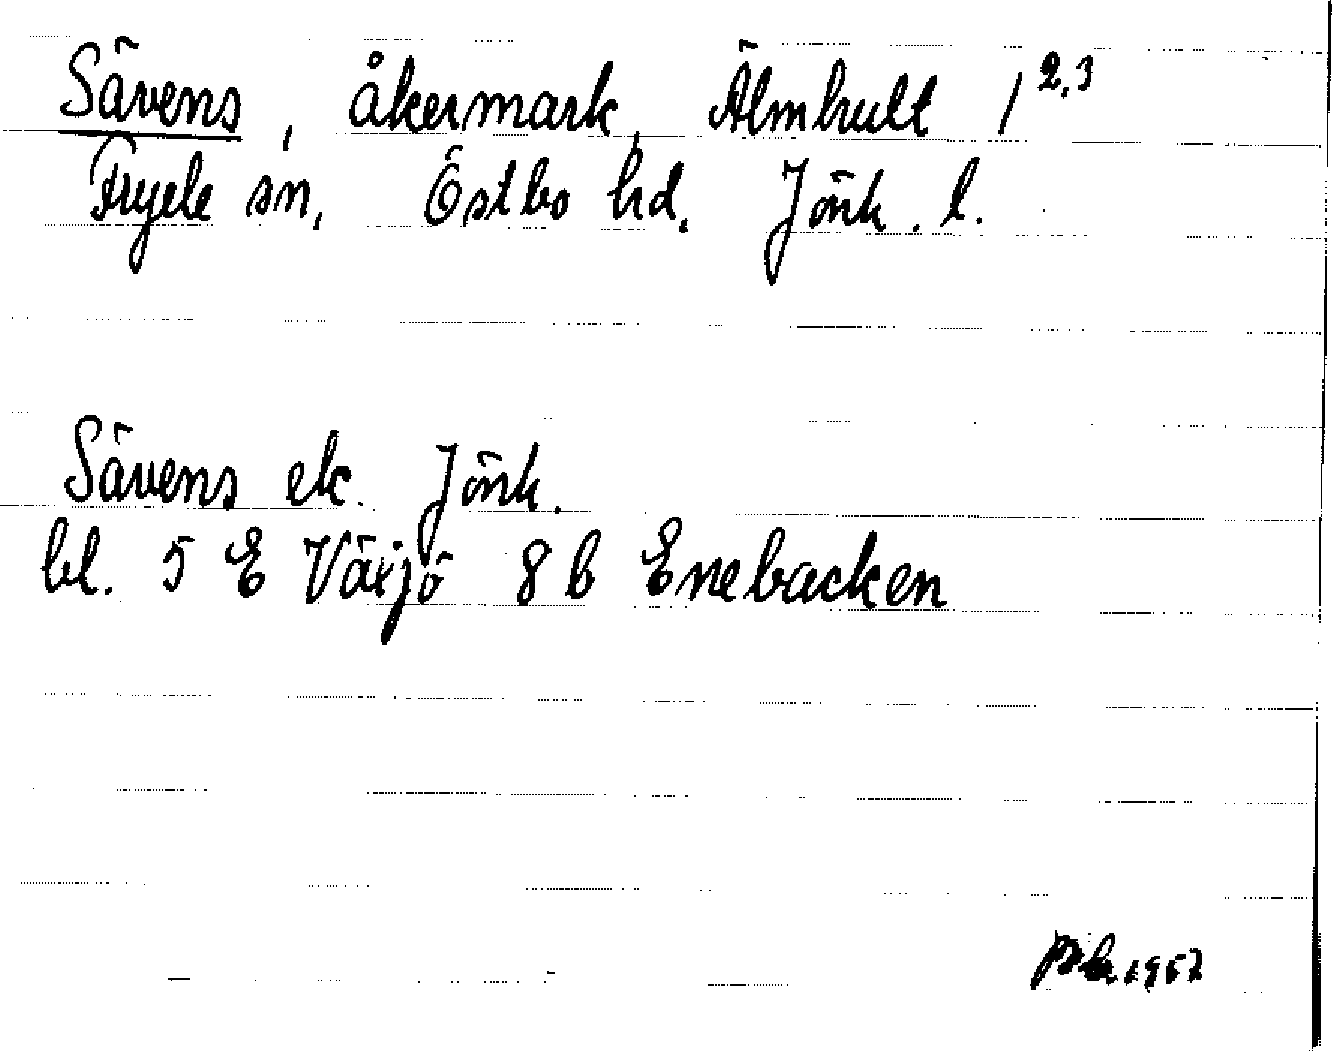 Sävens, åkermark, Älmhult 1 2,3
Fryele sn, Östbo hd. Jönk. l.
Sävens ek. Jönk.
bl. 5 E Växjö 8 b Enebacken